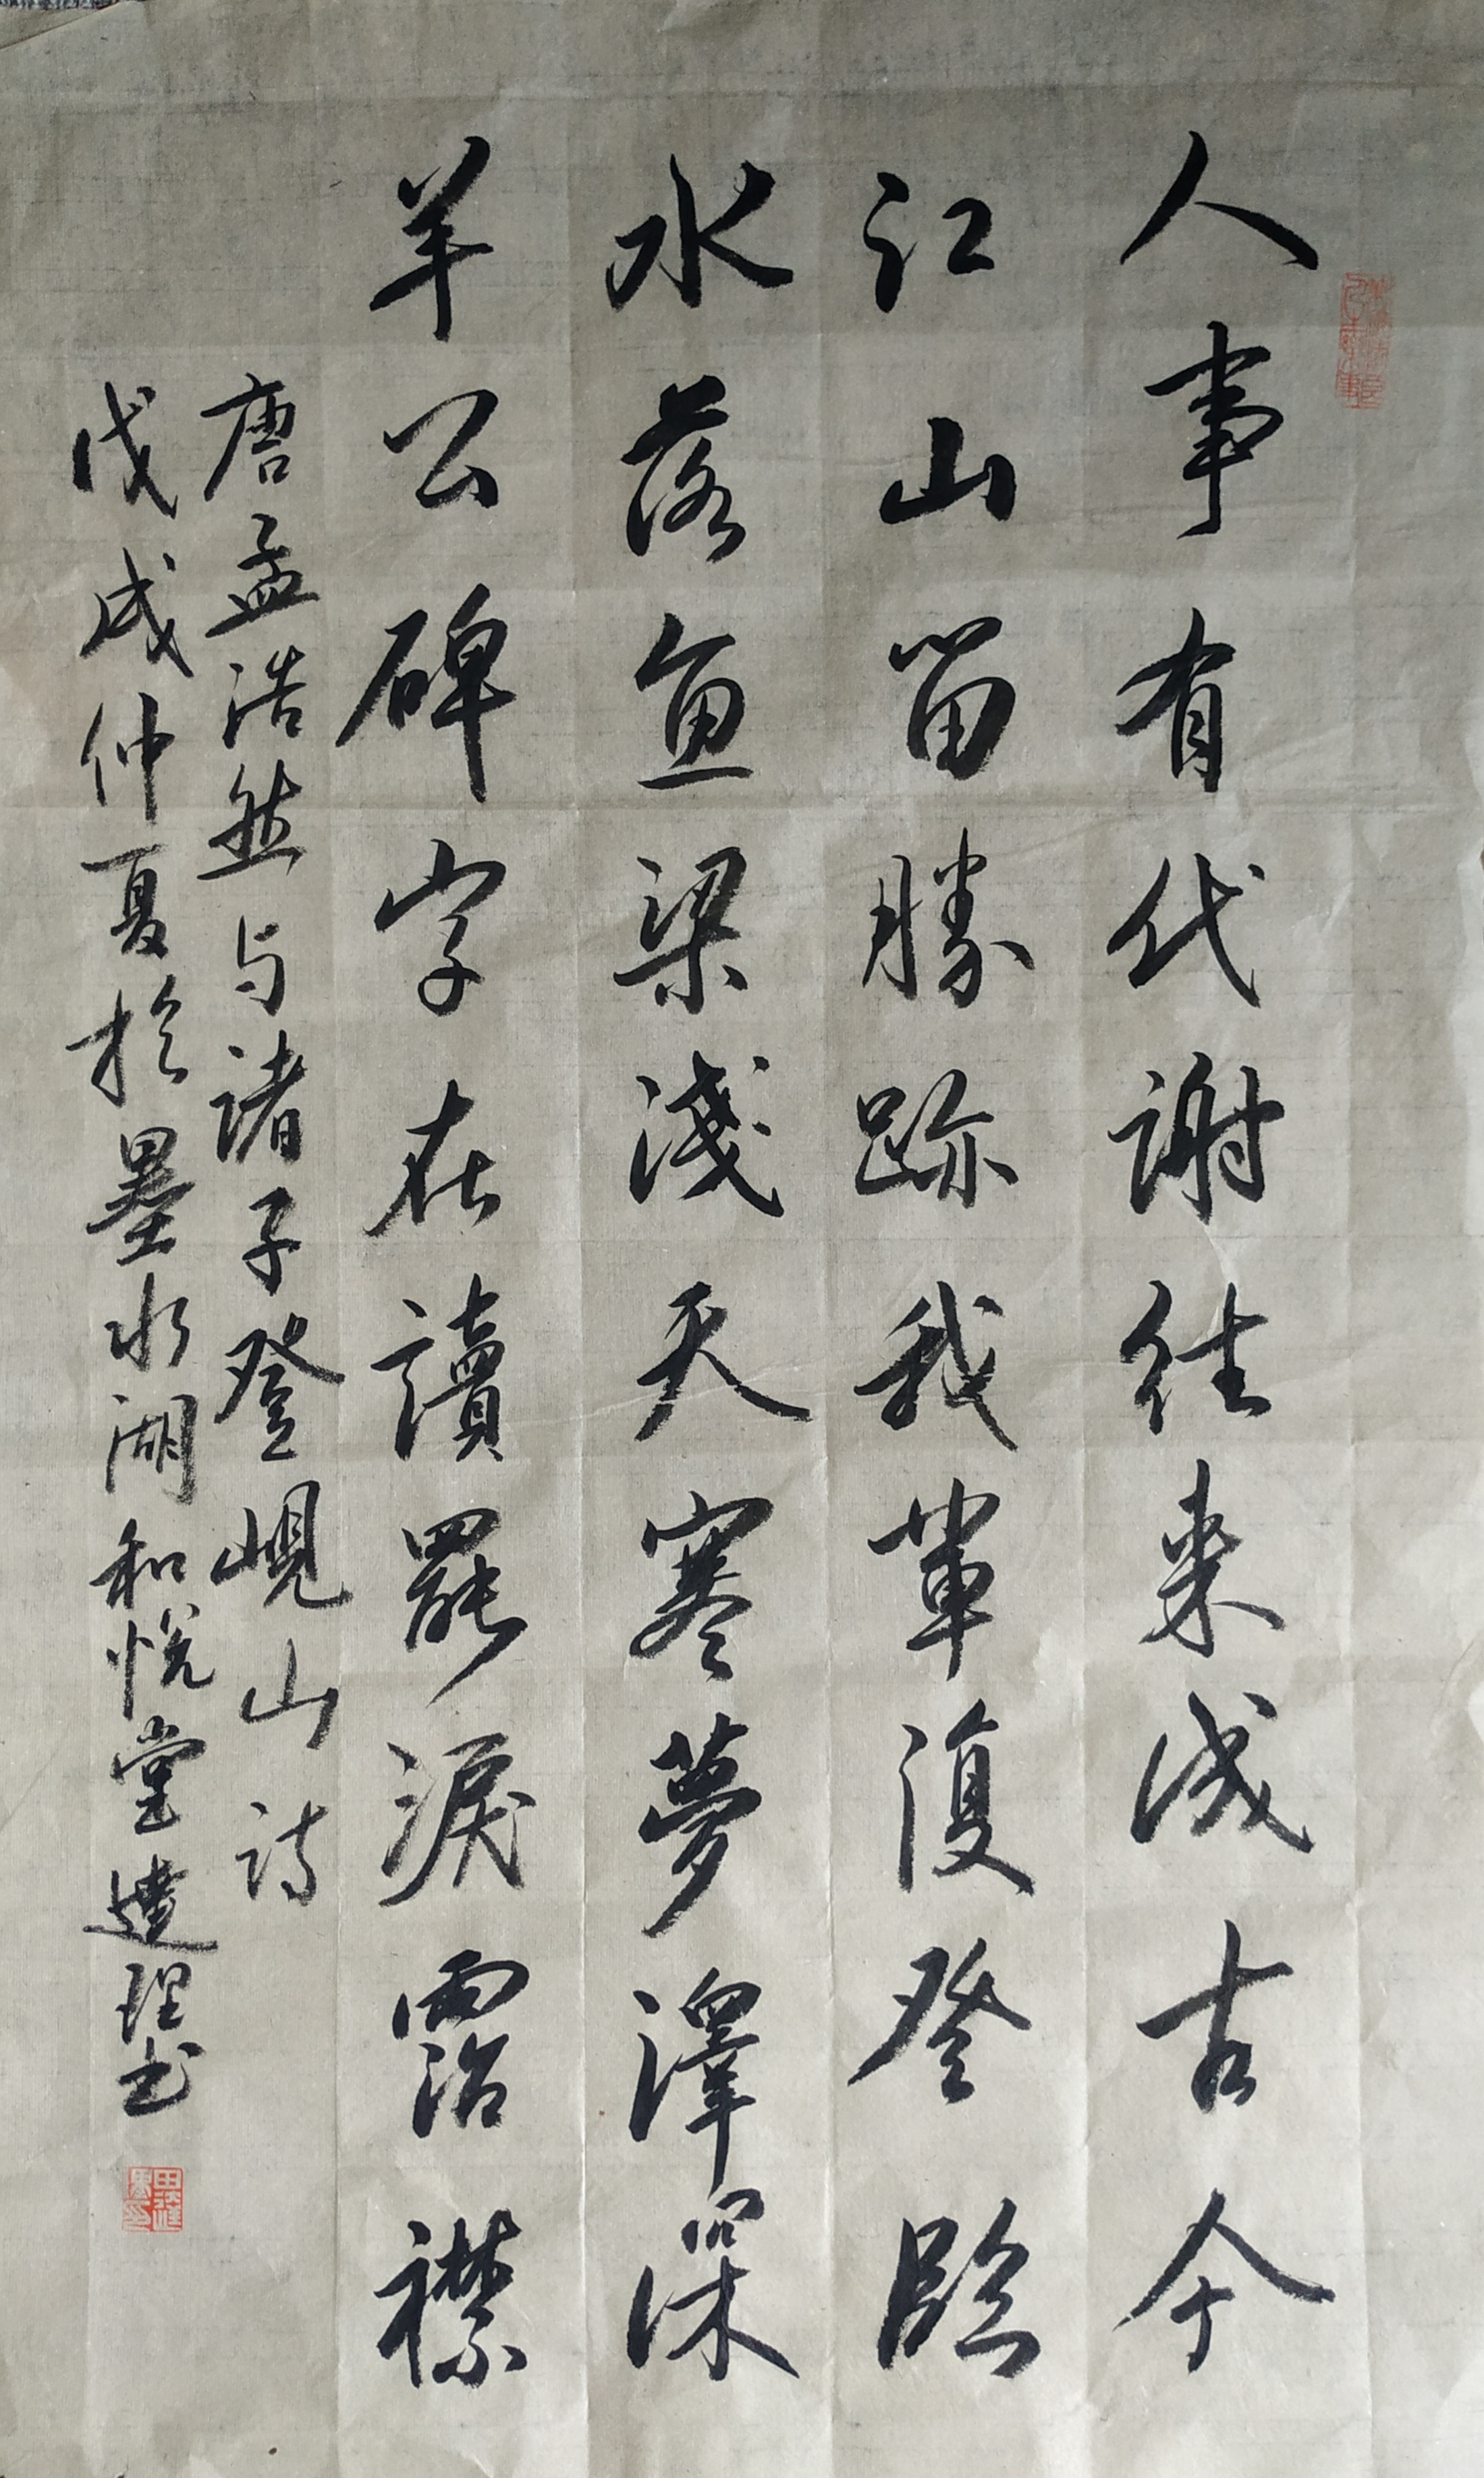 人事有代謝往來成古今
江山留勝跡我輩復登臨
水落魚梁淺天寒夢澤深
羊公碑字在讀罷淚霑襟
唐孟浩然与諸子登峴山詩
戊戌仲夏於墨水湖和悅堂建理书